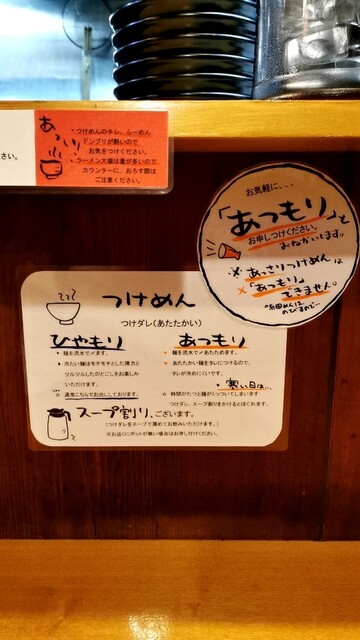 さい。
あつい!!
・つけめんのタレ、らーめん
ドンブリが熱いので
お気をつけください。
・ラーメン大盛は量が多いので、
カウンターに、おろす際は
ご注意ください。
お気軽に・・・
「あつもり」と
お申しつけください。
おねがいします。
※あっさりつけめんは
×「あつもり」
できません。
のびますので…
つけめん
つけダレ(あたたかい)
ひやもり
・麺を流水で〆ます。
・冷たい麺はモチモチとした弾力と
ツルツルしたのどごしをお楽しみ
いただけます。
☆通常こちらでお出ししております。
あつもり
・麺を流水で〆あたためます。
・あたたかい麺をタレにつけるので、
タレが冷めにくいです。
・寒い日は…
☆時間がたつと麺がくっついてしまいます
つけダレ、スープ割りをかけるとほぐれます。
スープ割り、ございます。
(つけダレをスープで薄めてお飲みいただけます。)
※お近くにポットが無い場合はお申し付けください。